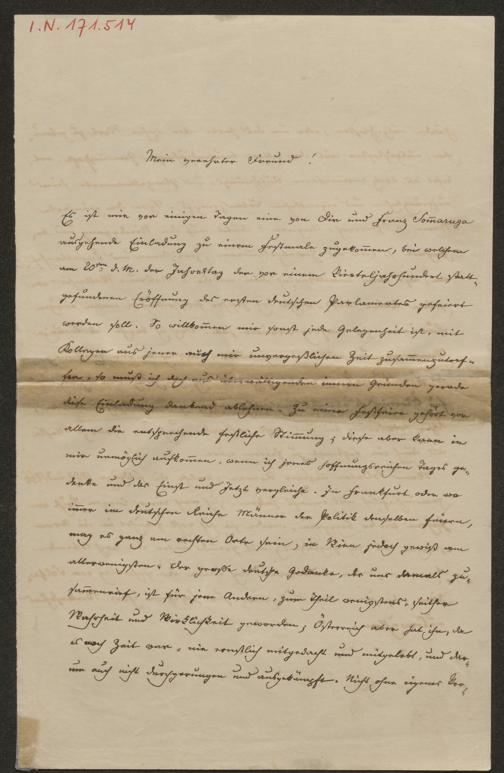 I.N. 171.514
Mein verehrter Freund!
Es ist mir vor einigen Tagen eine von Dir und Franz Som̅aruga
ausgehende Einladung zu einem Festmale zugekom̅en, bei welchem
am 20ten d. M. der Jahrestag der vor einem Vierteljahrhundert statt-
gefundenen Eröffnung des ersten deutschen Parlamentes gefeiert
werden soll. So willkom̅en mir sonst jede Gelegenheit ist, mit
Kollegen aus jener auch mir unvergeßlichen Zeit zusam̅enzutref-
fen, so muß ich doch aus überwältigenden innern Gründen gerade
diese Einladung dankend ablehnen. Zu einer Festfeier gehört vor
allem die entsprechende festliche Stim̅ung; diese aber kann in
mir unmöglich aufkom̅en, wenn ich jenes hoffnungsreichen Tages ge-
denke und das Einst und Jetzt vergleiche. In Frankfurt oder wo
im̅er im deutschen Reiche Männer der Politik denselben feiern,
mag es ganz am rechten Orte sein, in Wien jedoch gewiß am
allerwenigsten. Der große deutsche Gedanke, der uns damals zu-
sam̅enrief, ist für jene Andern, zum Theil wenigstens, seither
Wahrheit und Wirklichkeit geworden; Österreich aber hat ihn, da
es noch Zeit war, nie ernstlich mitgedacht und mitgelebt, und da-
rum auch nicht durchgerungen und ausgekämpft. Nicht ohne eigenes Ver-